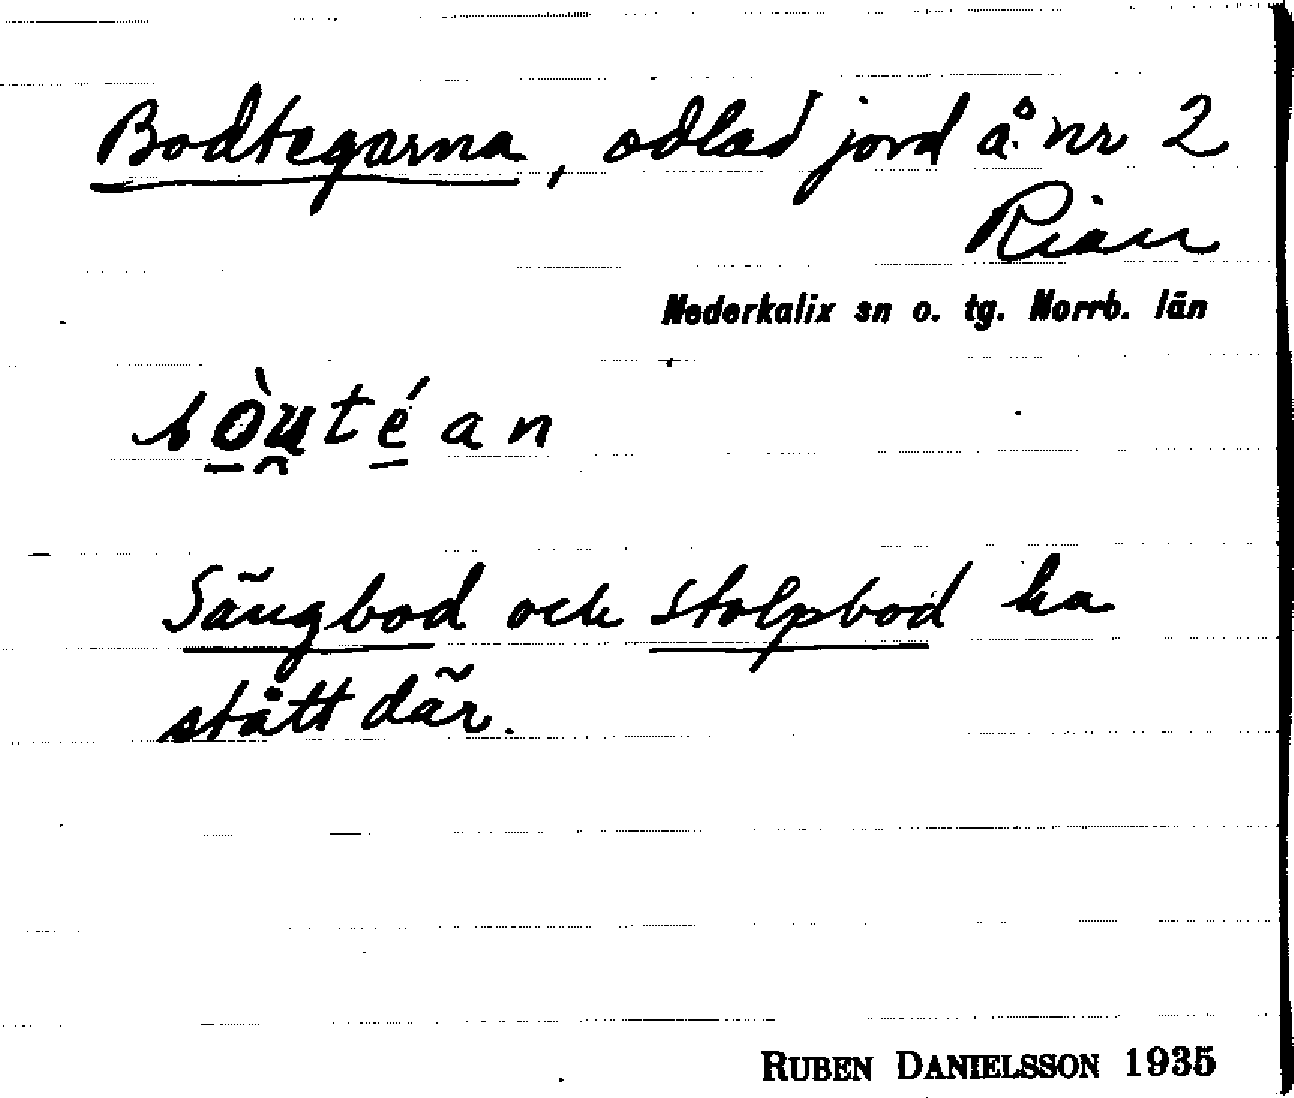 Bodtegarna, odlad jord å nr 2
Rian
Nederkalix sn o. tg. Norrb. län
bòu̯té̱an
Sängbod och stolpbod ha
stått där.
RUBEN DANIELSSON 1935